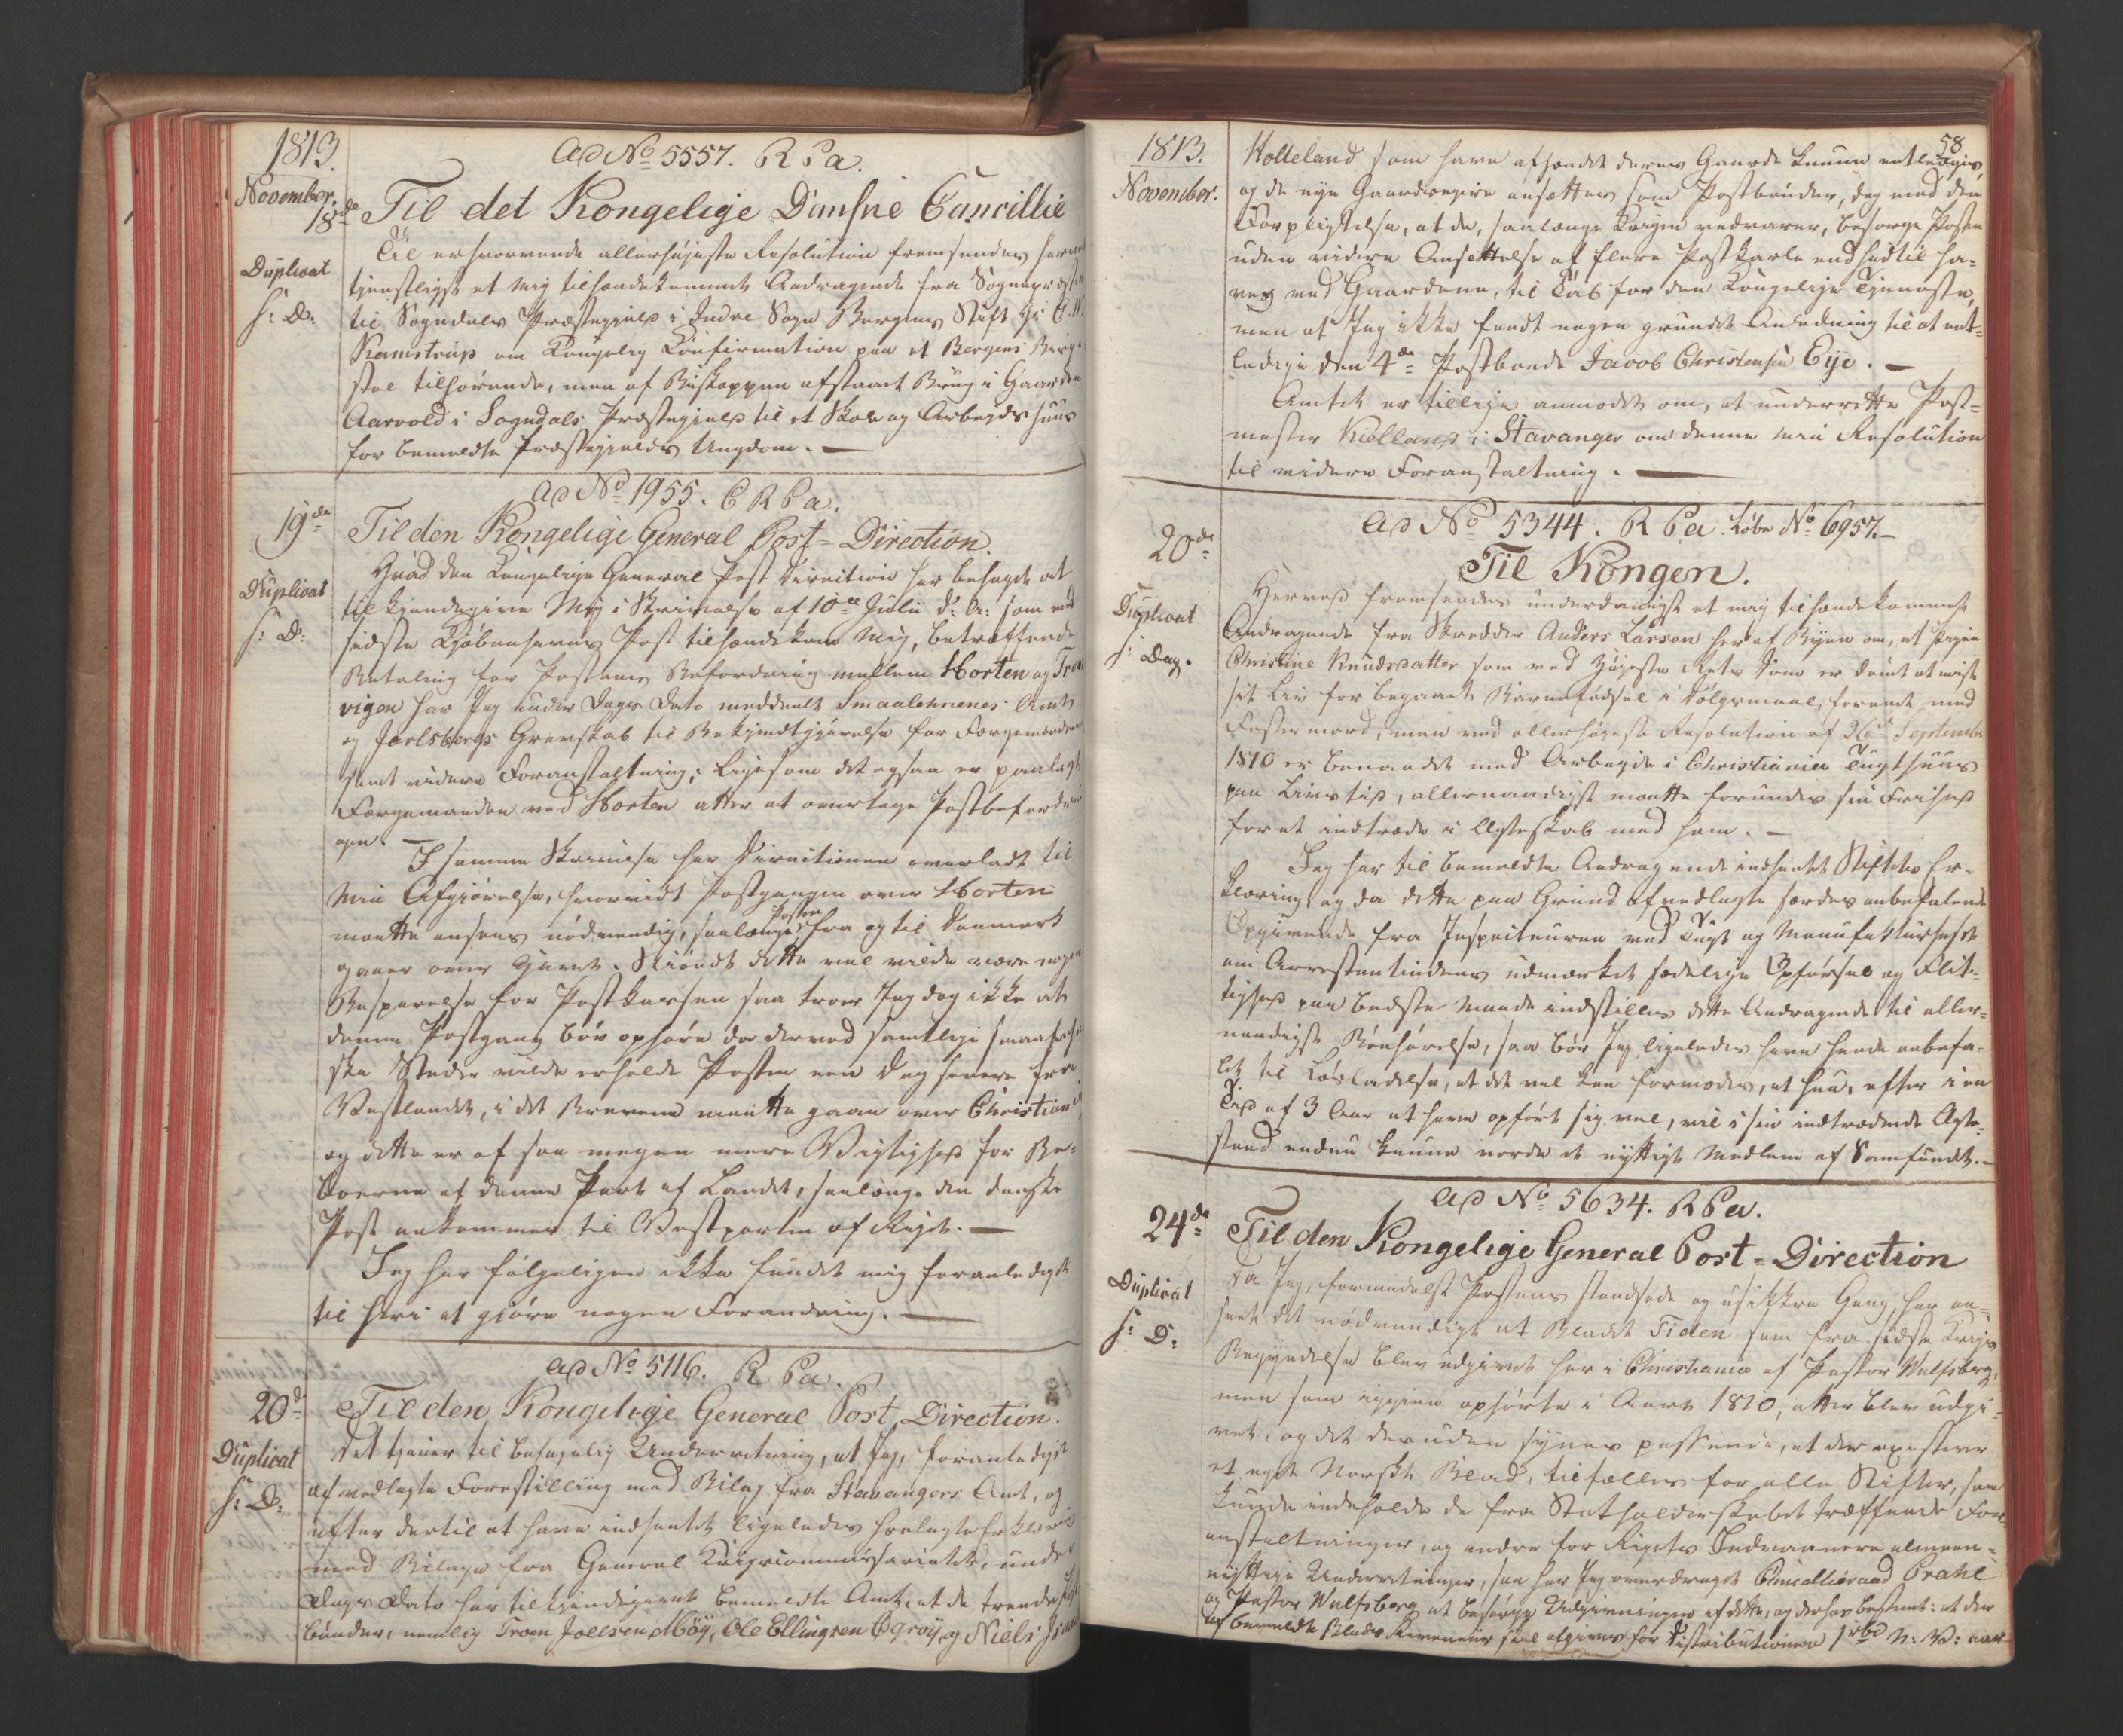 1813.
November.
18de
Duplicat
s: D:
Ad No 5557. R P a.
Til det Kongelige Danske Cancellie
Til erhvervende allerhøjeste Resolution fremsendes herved
tjenstligst et mig tilhændekommet Andragende fra Sognepræsten
til Sogndals Præstegjeld i Indre Sogn Bergens Stift Hr
Kamstrup om Kongelig Confirmation paa et Bergens Bispe
stol tilhørende, men af Biskoppen afstaaet Brug i Gaarden
Aarvold i Sogndals Præstegjeld til et Skole og Arbejds huus
for bemeldte Præstegjelds Ungdom. —
19de
Duplicat
s: D:
Ad No 1955. C R P a.
Til den Kongelige General Post-Direction.
Hvad den Kongelige General Post Direction har behaget at
tilkjendegive Mig i Skrivelse af 10de Julii d: A: som med
sidste Kjøbenhavns Post tilhændekom Mig, betræffende
Betaling for Postens Befordring mellem Horten og
vigen har Jeg under Dags Dato meddeelt Smaalehnenes Amt
og Jarlsbergs Grevskab til Bekjendtgjørelse for Færgemændene
samt videre Foranstaltning; ligesom det ogsaa er paalagt
Færgemanden ved Horten atter at overtage Postbefordrin
gen. —
I samme Skrivelse har Directionen overladt til
Min Afgjørelse, hvorvidt Postgangen over Horten
maatte ansees nødvendig, saalænge Posten fra og til Danmark
gaaer over . Skiøndt dette vel vilde være nogen
Besparelse for Postkassen saa troer Jeg dog ikke at
denne Postgang bør ophøre da derved samtlige smaalehn
ske Steder vilde erholde Posten een Dag senere fra
Vestlandet, i det Brevene maatte gaae over Christiania
og dette er af saa megen mere Vigtighed for Be-
boerne af denne Part af Landet, saalænge den danske
Post ankommer til Vestparten af Riget. —
Jeg har følgeligen ikke fundet mig foranlediget
til heri at gjøre nogen Forandring. —
20de
Duplicat
s: D:
Ad No 5116. R P a.
Til den Kongelige General Post Direction.
Det tjener til behagelig Underretning, at Jeg, foranlediget
af vedlagte Forestilling med Bilag fra Stavangers Amt, og
efter dertil at have indhentet ligeledes hoslagte Erklæring
med Bilage fra General Krigscommissariatet, under
Dags Dato har tilkjendegivet bemeldte Amt, at de trende Post
bønder, nemlig Troen Joelsen Møy, Ole Ellingsen Ogrøy, og Niels
1813.
November.
58
Holteland som have afhændet deres Gaarde kunne entlediges,
og de nye Gaardbrugere ansættes som Postbønder, dog med den
Forpligtelse, at de, saalænge Krigen vedvarer, besørge Posten
uden videre Ansættelse af flere Postkarle end hidtil ha-
ves ved Gaardene, til Tab for den Kongelige Tjeneste,
men at Jeg ikke fandt nogen grundet Anledning til at ent-
ledige den 4de Postbonde Jacob Christensen Eye. —
Amtet er tillige anmodet om, at underrette Post-
mester Kielland i Stavanger om denne min Resolution
til videre Foranstaltning. —
20de
Duplicat
s: Dag.
Ad No 5344. R P a. Løbe No 6957. —
Til Kongen.
Herved fremsendes underdanigst et mig tilhændekommet
Andragende fra Skrædder Anders Larsen her af Byen om, at Pigen
Christine Knudsdatter som ved Høyeste Rets Dom er dømt at miste
sit Liv for begaaet Barnefødsel i Dølgsmaal, forenet med
Fostermord, men ved allerhøjeste Resolution af 26de September
1810 er benaadet med Arbejde i Christiania Tugthuus
paa Livstid, allernaadigst maatte forundes sin Frihed
for at indtræde i Ægteskab med ham. —
Jeg har til bemeldte Andragende indhentet Stiftets Er-
klæring og da dette paa Grund af vedlagte særdeles anbefalende
Opgivende fra Inspecteuren ved Tugt og Manufakturhuset
om Arrestantindens udmærket sædelige Opførsel og Flit-
tighed paa bedste Maade indstilles dette Andragende til aller-
naadigst Bønhørelse, saa bør Jeg ligeledes have hende anbefa-
let til Løsladelse, at det vel kan formodes, at hun, efter i en
Tid af 3 Aar at have opført sig vel, vil i sin indtrædende Ægte-
stand endnu kunne vorde et nyttigt Medlem af Samfundet. —
24de
Duplicat
s: D:
Ad No 5634. R P a.
Til den Kongelige General Post-Direction
Da Jeg, formedelst Postens standsede og usikkre Gang, har an-
seet det nødvendigt at Bladet Tiden som fra sidste Krigs
Begyndelse blev udgivet her i Christiania af Pastor Wulfsberg,
men som igjen ophørte i Aaret 1810, atter blev udgi-
vet, og det desuden synes passende, at der existerer
et eget Norskt Blad, tilfælles for alle Stifter, som
kunde indeholde de fra Statholderskabet træffende For-
anstaltninger, og andre for Rigets Indvaanere almeen-
nyttige Underretninger, saa har Jeg overdraget Cancellieraad Prahl
og Pastor Wulfsberg at besørge Udgivningen af dette, og derhos bestemt: at der
af bemeldte Blads Revenuer skal afgives for Distributionen 1 rbd N: V: aar-